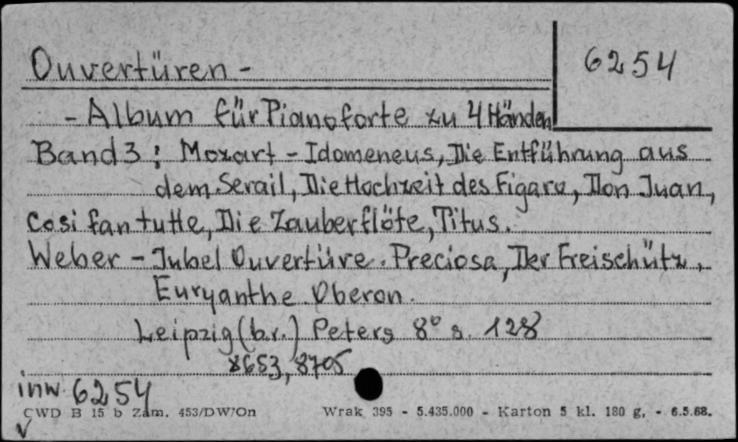 Ouvertüren -
6254
- Album für Pianoforte zu 4 Händen
Band 3: Mozart - Idomeneus, Die Entführung aus
dem Serail, Die Hochzeit des Figaro, Don Juan,
Cosi fan tutte, Die Zauberflöte, Titus.
Weber - Jubel Ouvertüre. Preciosa, Der Freischütz,
Euryanthe. Oberon.
Leipzig (b.r.) Peters 8° s. 128
8653, 8705
inw 6254
CWD B 15 b Zam. 453/DW/On Wrak 395 - 5.435.000 - Karton 5 kl. 180 g. - 6.5.68.